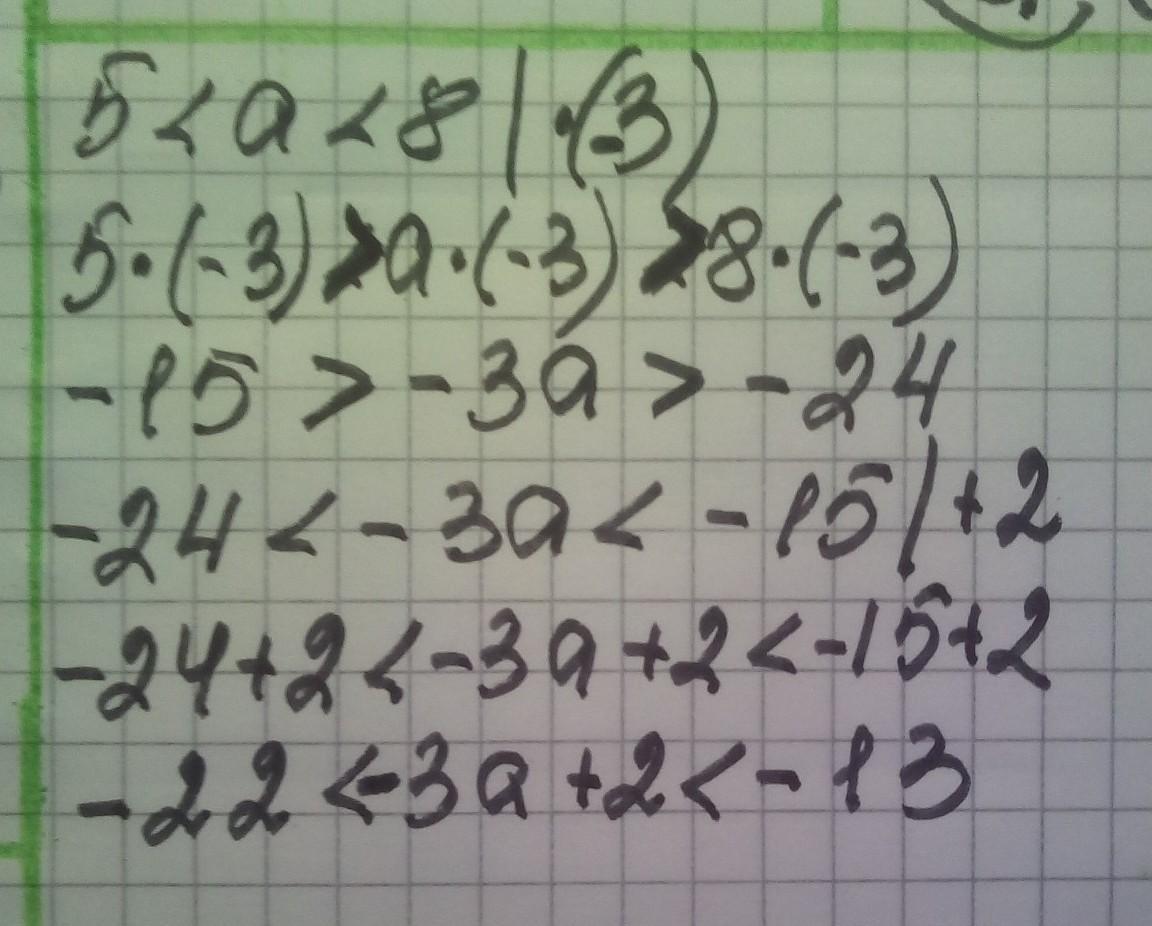 5 < a < 8 | ·(-3)
5·(-3) > a·(-3) > 8·(-3)
-15 > -3a > -24
-24 < -3a < -15 | +2
-24+2 < -3a+2 < -15+2
-22 < -3a+2 < -13